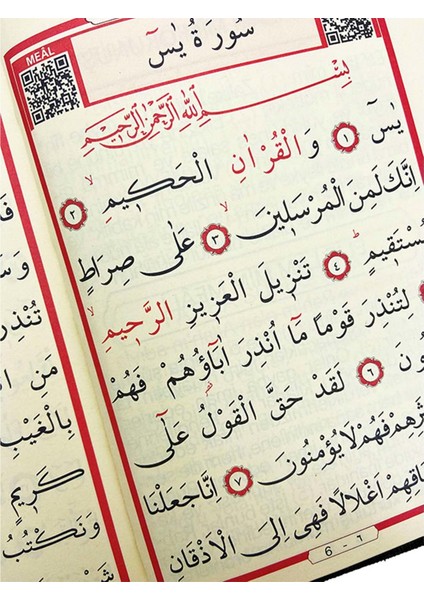 MEÂL
سُورَةُ يٰسٓ
بِسْمِ اللّٰهِ الرَّحْمٰنِ الرَّحِيمِ
يٰسٓ ١ وَالْقُرْاٰنِ الْحَكِيمِ ٢
اِنَّكَ لَمِنَ الْمُرْسَلِينَ ٣ عَلٰى صِرَاطٍ
مُسْتَقِيمٍ ٤ تَنْزِيلَ الْعَزِيزِ الرَّحِيمِ
لِتُنْذِرَ قَوْمًا مَٓا اُنْذِرَ اٰبَٓاؤُ۬هُمْ فَهُمْ
ونَ ٦ لَقَدْ حَقَّ الْقَوْلُ عَلٰٓى
ثَرِهِمْ فَهُمْ لَا يُؤْمِنُونَ ٧ اِنَّا جَعَلْنَا
نَاقِهِمْ اَغْلَالًا فَهِيَ اِلَى الْاَذْقَانِ
6 - ٦
تُنْذِرَ
بِالْغَيْبِ
كَرِيمٍ
وَنَكْتُبُ